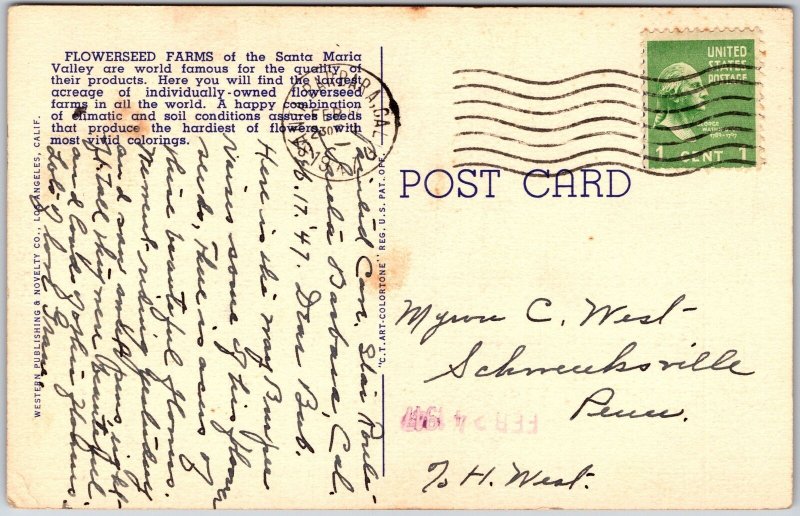 FLOWERSEED FARMS of the Santa Maria
Valley are world famous for the quality of
their products. Here you will find the largest
acreage of individually-owned flowerseed
farms in all the world. A happy combination
of climatic and soil conditions assures seeds
that produce the hardiest of flowers with
most vivid colorings.
WESTERN PUBLISHING & NOVELTY CO., LOS ANGELES, CALIF.
"C.T. ART-COLORTONE" REG. U.S. PAT. OFF.
SANTA BARBARA, CAL.
FEB
1947
UNITED
STATES
POSTAGE
1 CENT 1
POST CARD
Cor. Star Route
Santa Barbara, Cal.
2/17.'47. Dear Bub.
Here is the way Burpee
raises some of his flower
seeds, there is acres of
these beautiful flowers.
and saw
tall they were beautiful
and loads of other flowers.
Lots of love
Myron C. West
Schwenksville
Penn.
℅ H. West.
FEB 24 1947